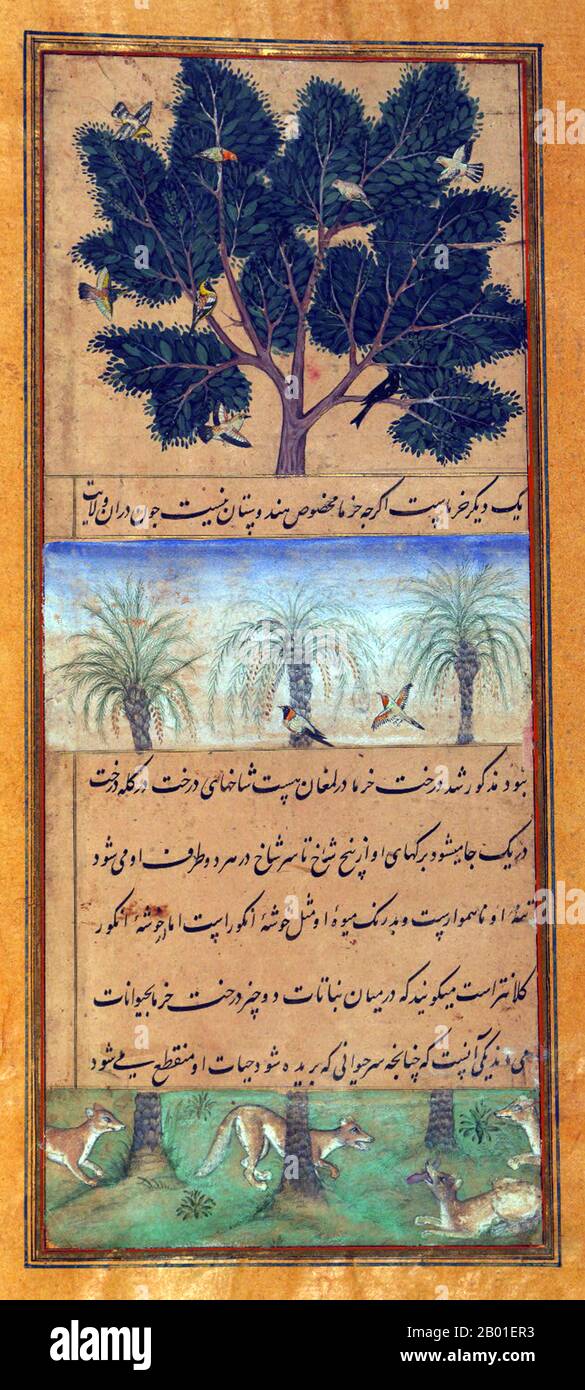 یک دیگر خرماست اگرچه خرما مخصوص هندوستان نیست چون در ان ولایت
بود مذکور شد درخت خرما در لمغان هست شاخهای درخت در کله درخت
در یک جا میشود برکهای او از بیخ شاخ تا سر شاخ در هر دو طرف او می شود
تنهٔ او ناهموارست و بدرنک میوهٔ او مثل خوشهٔ انکور است اما از خوشهٔ انکور
کلانتر است میکویند که درمیان نباتات دو چیز درخت خرما بحیوانات
می ماند یکی آنست که چنانچه سر حیوانی که بریده شود حیات او منقطع می شود
alamy
Image ID: 2B01ER3
www.alamy.com